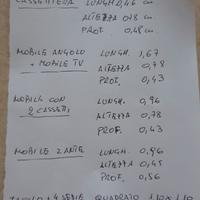 CASSETTIERA LUNGH 0,46 cm
ALTEZZA 0,78 cm
PROF. 0,48 cm
MOBILE ANGOLO LUNGH. 1,67
+ MOBILE TV ALTEZZA 0,48
PROF. 0,43
MOBILE CON LUNGH. 0,96
2 CASSETTI ALTEZZA 0,78
PROF. 0,43
MOBILE 2 ANTE LUNGH. 0,96
ALTEZZA 0,45
PROF. 0,56
TAVOLO + 4 SEDIE QUADRATO 1,10 X 1,10